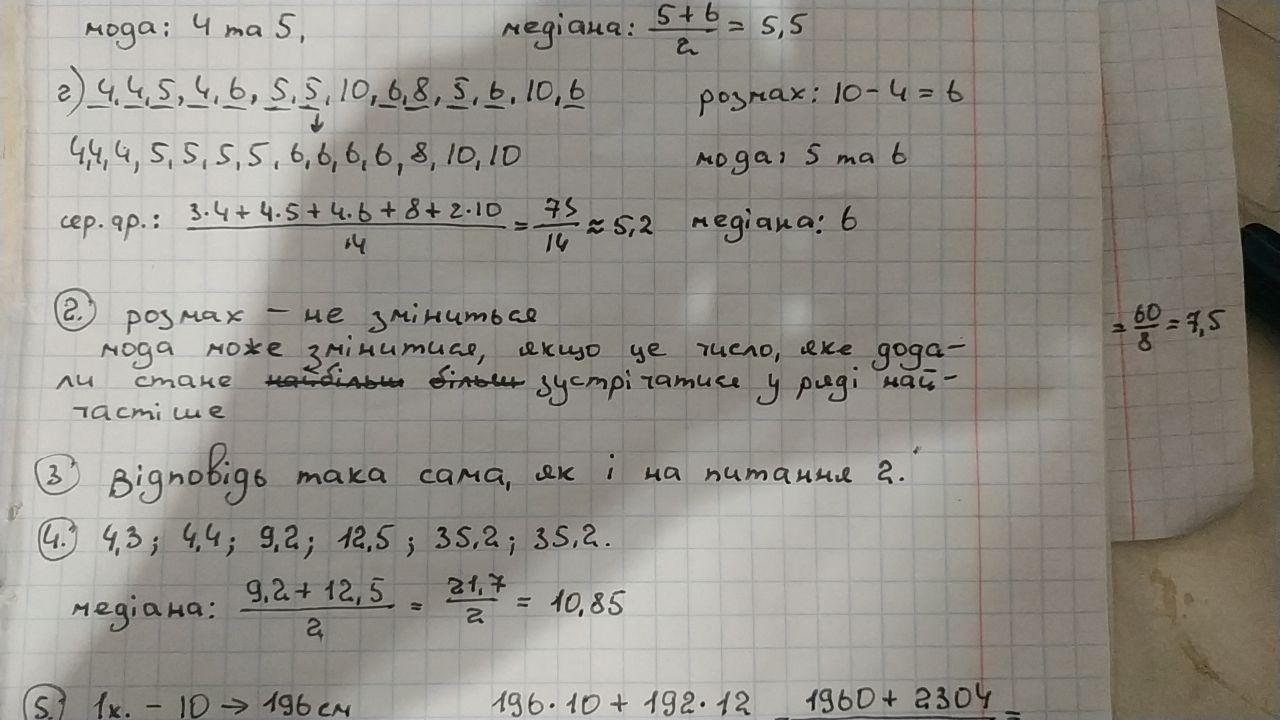 мода: 4 та 5, медіана: (5+6)/2 = 5,5
г) 4, 4, 5, 4, 6, 5, 5, 10, 6, 8, 5, 6, 10, 6 розмах: 10-4=6
4,4,4, 5, 5, 5, 5, 6, 6, 6, 6, 8, 10, 10 мода: 5 та 6
сер. ар.: (3·4+4·5+4·6+8+2·10)/14 = 73/14 ≈ 5,2 медіана: 6
2. розмах – не зміниться
мода може змінитися, якщо це число, яке дода-
ли стане найбільш більш зустрічатися у ряді най-
частіше
= 60/8 = 7,5
3. Відповідь така сама, як і на питання 2.
4. 4,3; 4,4; 9,2; 12,5; 35,2; 35,2.
медіана: (9,2+12,5)/2 = 21,7/2 = 10,85
5. 1к. – 10 → 196 см 196·10+192·12 = 1960+2304 =